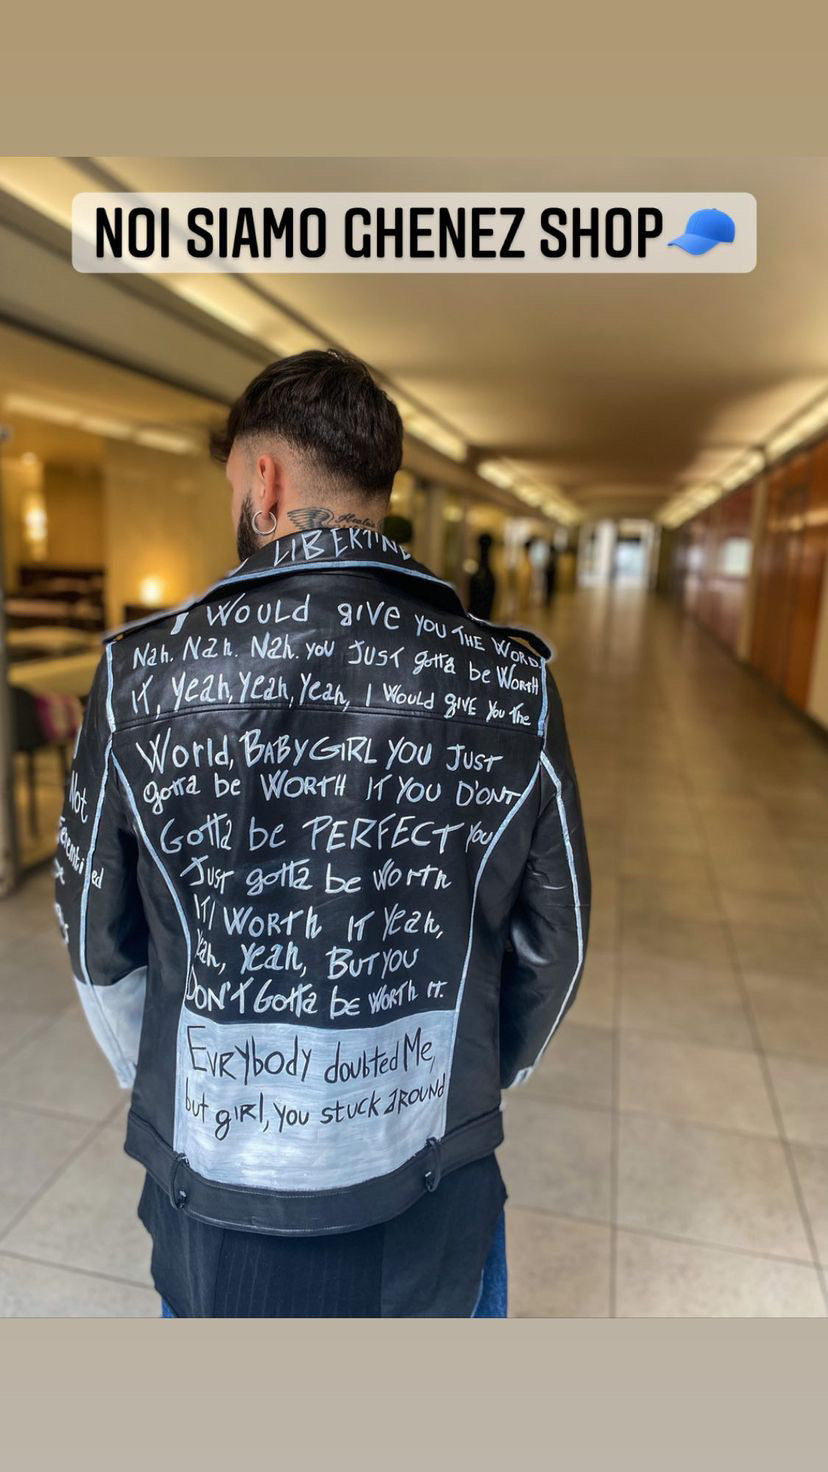 NOI SIAMO GHENEZ SHOP
LIBERTINE
I WOULD giVE YOU THE WORD
Nah. Nah. Nah. you JUST gotta be WORTH
IT, yeah, yeah, yeah, I WOULD giVE you the
World, BABYGIRL YOU JUST
gotta be WORTH IT YOU D'ONT
Gotta be PERFECT you
Just gotta be Worth
IT/ WORTH IT Yeah,
Yah, Yeah, BUT YOU
DON'T Gotta be WORTH IT.
EVRYbODY doubted Me,
but giRl, you stuck aROUND
Not